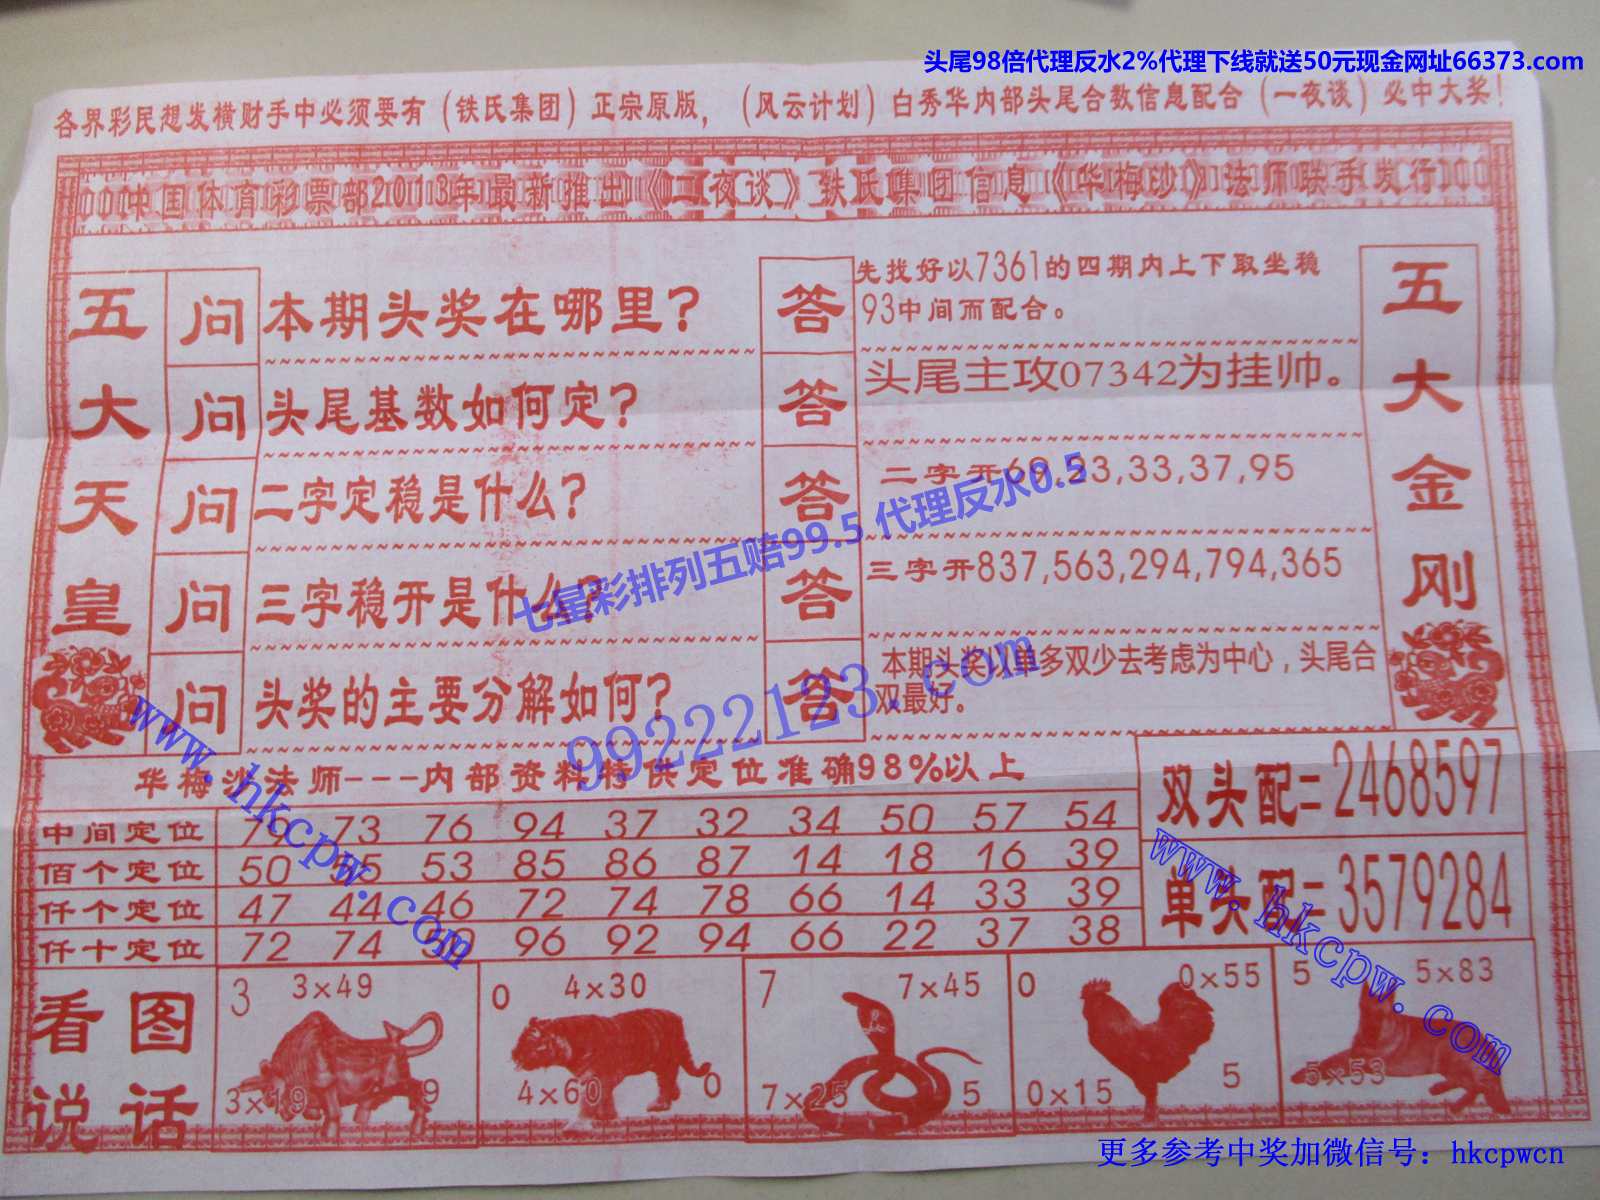 头尾98倍代理反水2%代理下线就送50元现金网址66373.com
各界彩民想发横财手中必须要有（铁氏集团）正宗原版，（风云计划）白秀华内部头尾合数信息配合（一夜谈）必中大奖！
中国体育彩票部2013年最新推出《二夜谈》铁氏集团信息《华梅沙》法师联手发行
五大天皇
问 本期头奖在哪里？
答 先找好以7361的四期内上下取坐稳
93中间而配合。
问 头尾基数如何定？
答 头尾主攻07342为挂帅。
问 二字定稳是什么？
答 二字开69,23,33,37,95
问 三字稳开是什么？
答 三字开837,563,294,794,365
问 头奖的主要分解如何？
答 本期头奖以单多双少去考虑为中心，头尾合
双最好。
五大金刚
七星彩排列五赔99.5 代理反水0.5
99222123.com
www.hkcpw.com
华梅沙法师---内部资料特供定位准确98%以上
中间定位 73 76 94 37 32 34 50 57 54
佰个定位 50 55 53 85 86 87 14 18 16 39
仟个定位 47 44 46 72 74 78 66 14 33 39
仟十定位 72 74 96 92 94 66 22 37 38
双头配=2468597
单头配=3579284
www.hkcpw.com
看图
说话
3 3×49
3×19 9
0 4×30
4×60 0
7 7×45
7×25 5
0 0×55
0×15 5
5 5×83
5×53
更多参考中奖加微信号：hkcpwcn